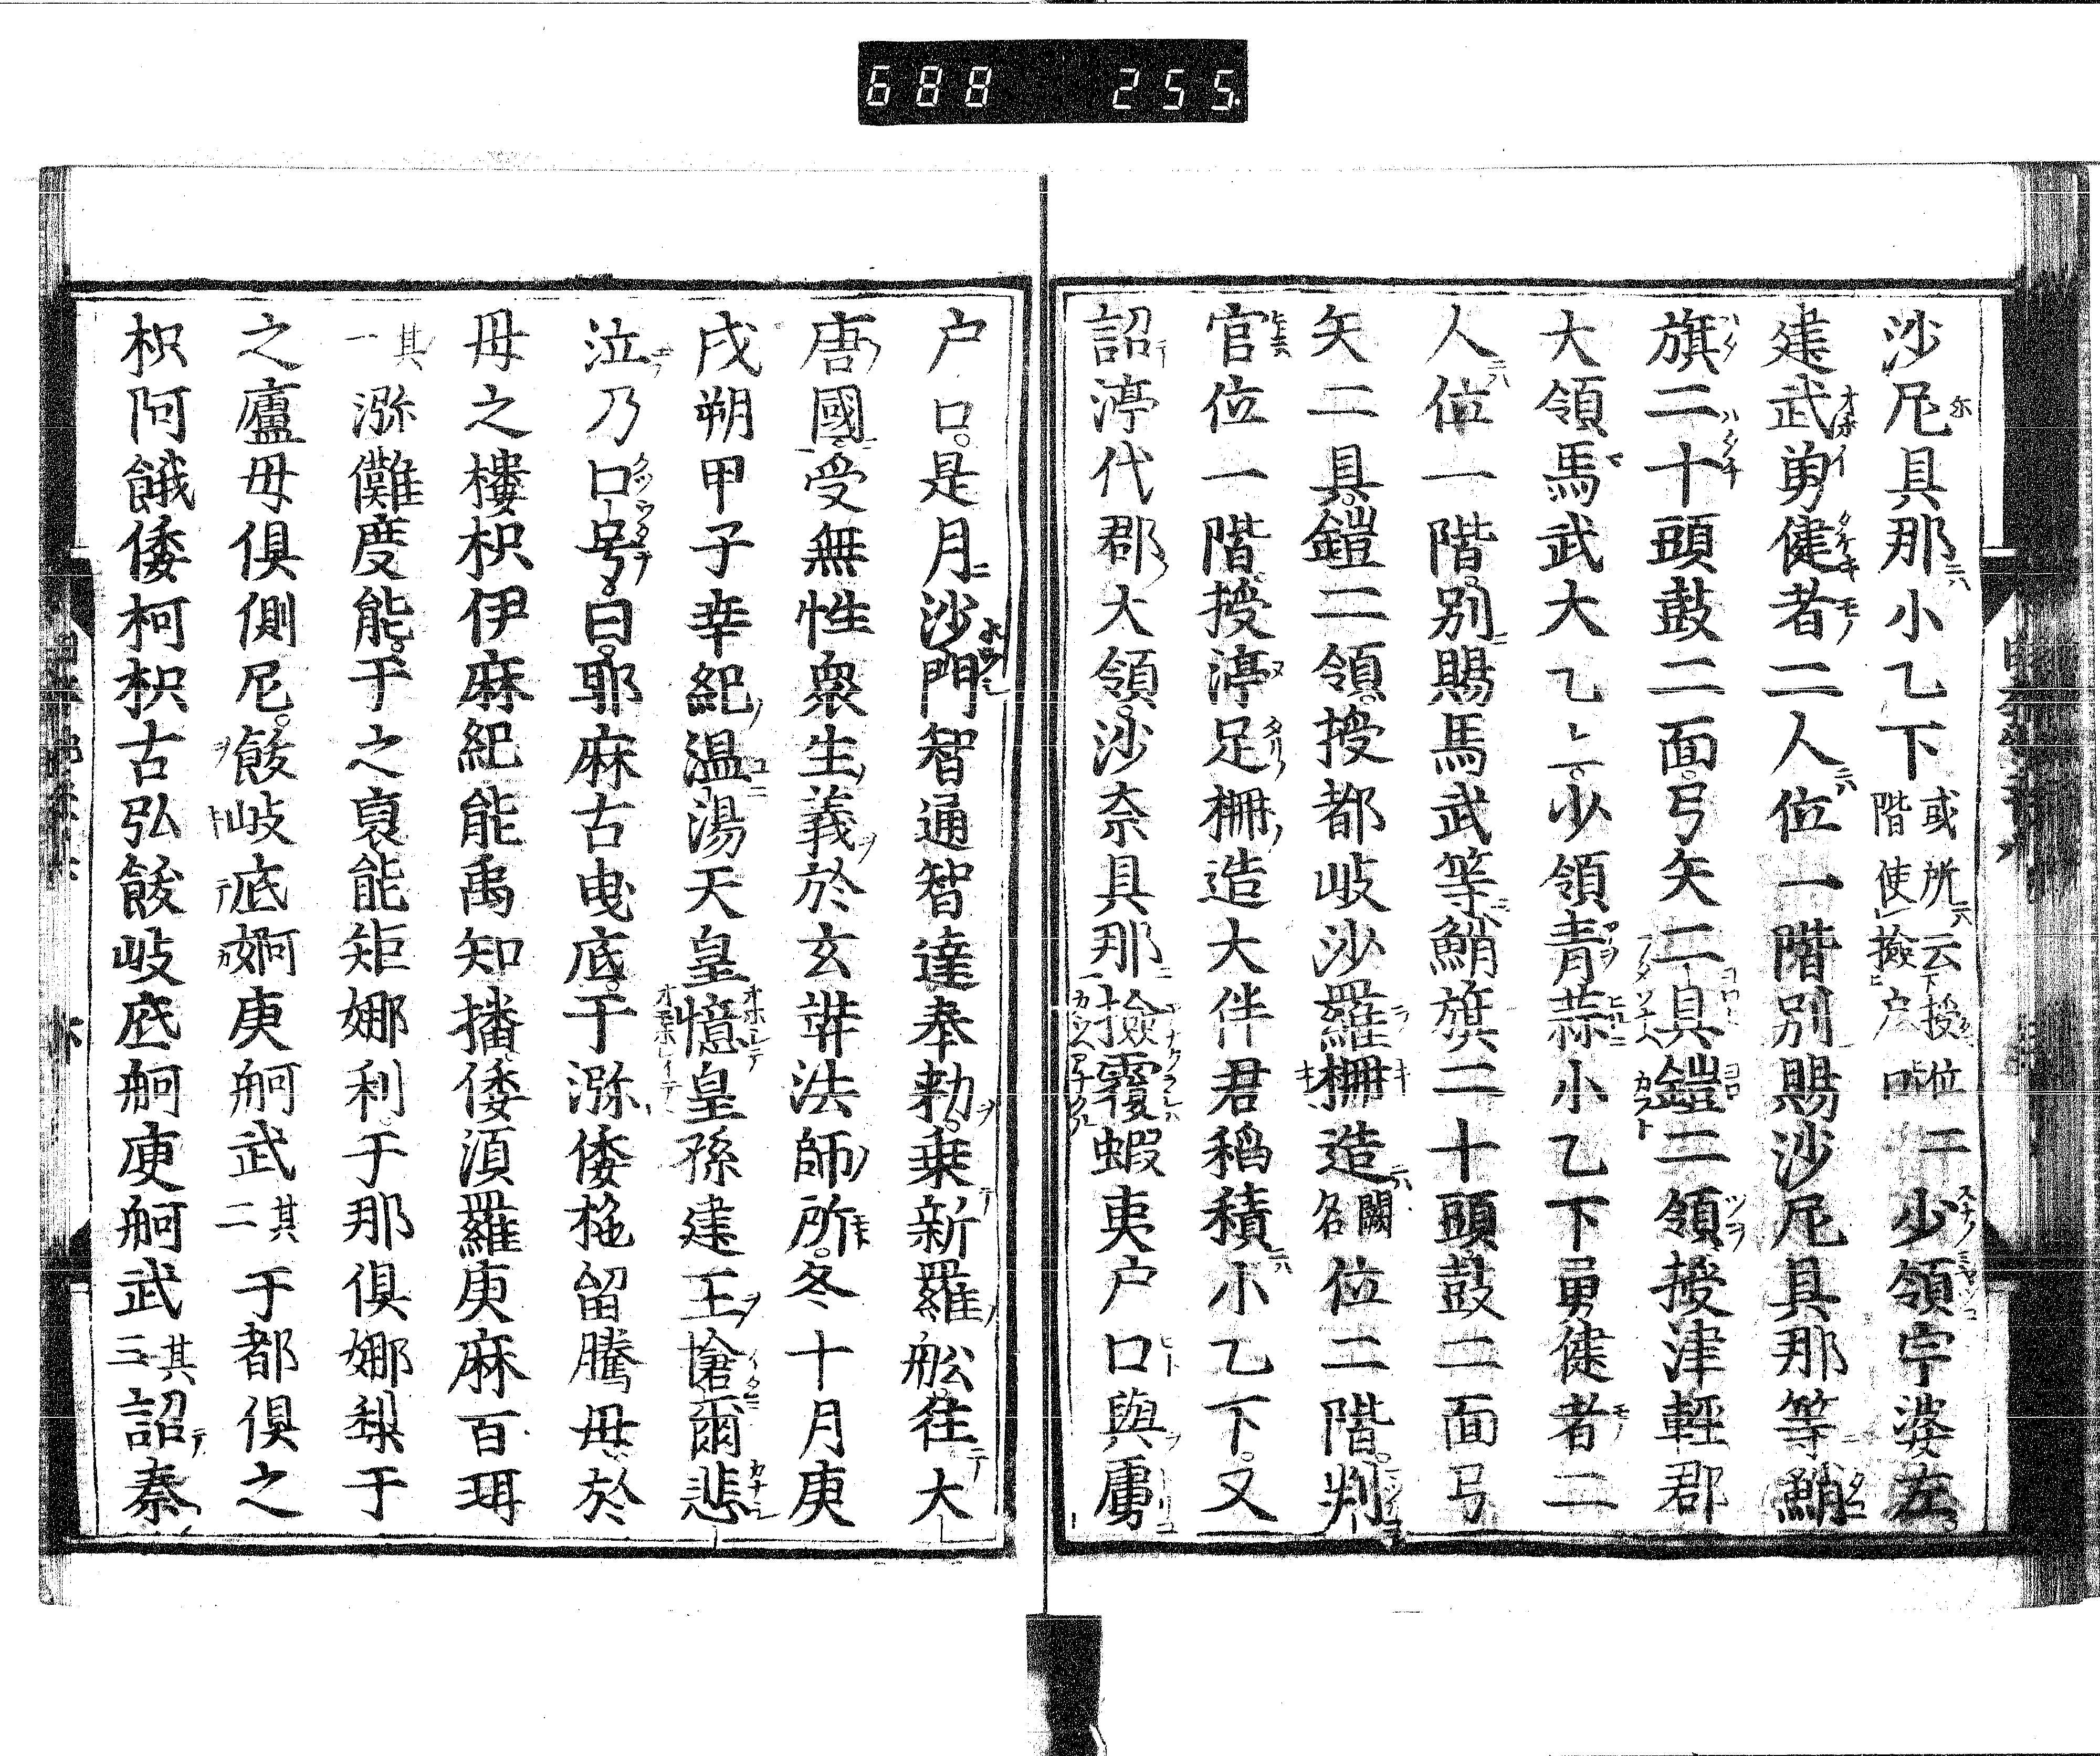 688 255.
沙尼具那小乙下或所云授位二階使撿戸口少領宇婆左
建武勇健者二人位一階別賜沙尼具那等鮹
旗二十頭鼓二面弓矢二具鎧二領授津輕郡
大領馬武大乙上少領青蒜小乙下勇健者二
人位一階別賜馬武等鮹旗二十頭鼓二面弓
矢二具鎧二領授都岐沙羅柵造闕名位二階判
官位一階授渟足柵造大伴君稻積小乙下又
詔渟代郡大領沙奈具那撿覆蝦夷户口與虜
户口是月沙門智通智達奉勅乗新羅舩往大
唐國受無性衆生義於玄弉法師所冬十月庚
戌朔甲子幸紀温湯天皇憶皇孫建王愴爾悲
泣乃口号曰耶麻古曳底于瀰倭柂留騰毋於
母之樓枳伊麻紀能禹知播倭湏羅庾麻百珥
其一瀰儺度能于之裒能矩娜利于那倶娜梨于
之廬毋倶側尼飫岐底娿庾舸武其二于都倶之
枳阿餓倭柯枳古弘飫岐底舸庾舸武其三詔秦